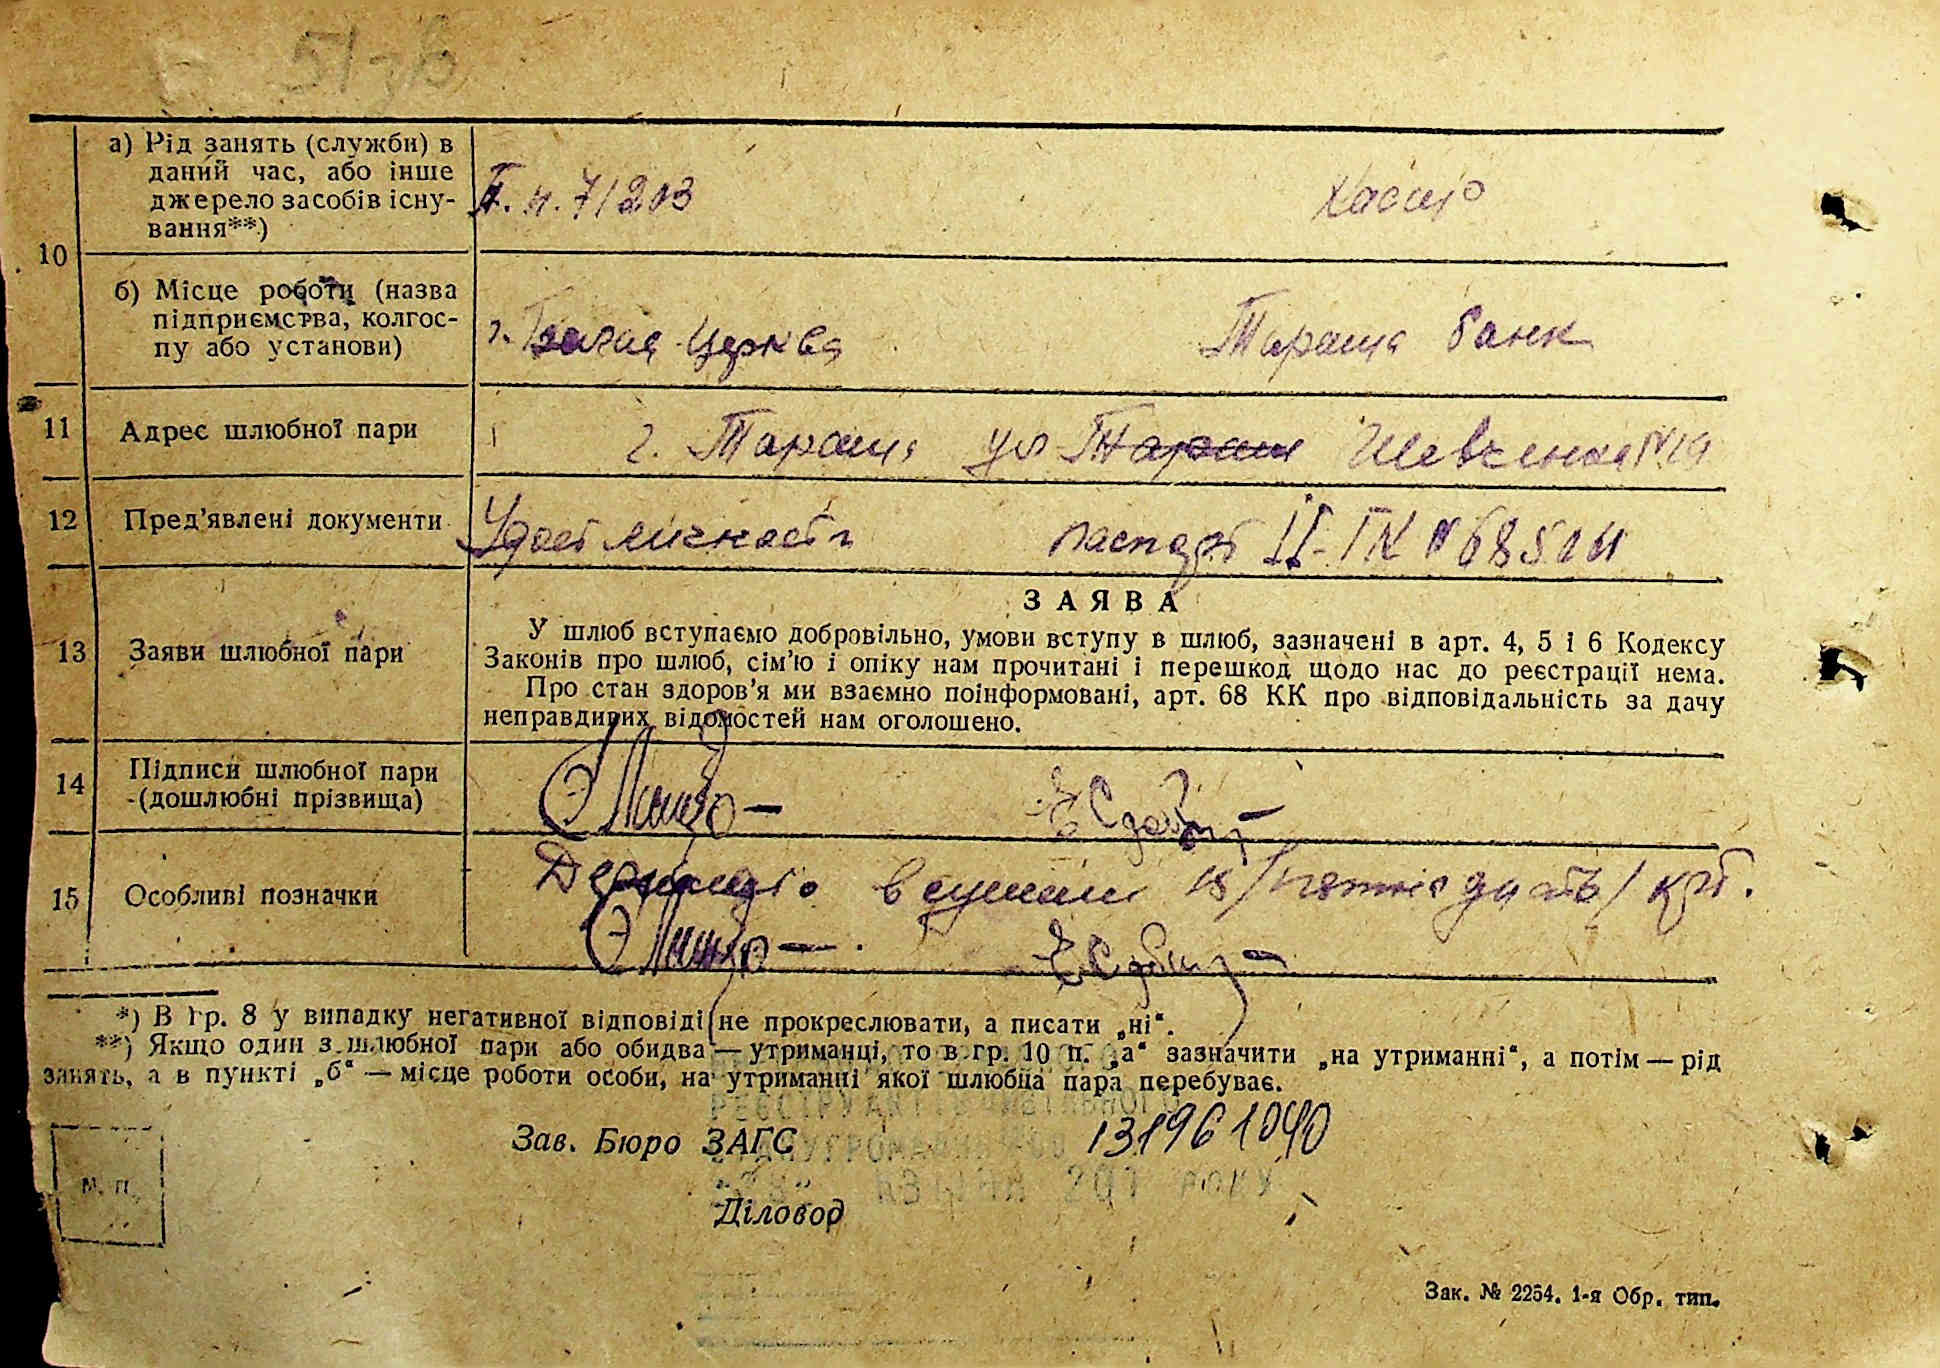 а) Рід занять (служби) в
даний час, або інше
джерело засобів існу-
вання**)
П. п. 7/203
10
б) Місце роботи (назва
підприємства, колгос-
пу або установи)
г. Белая Церква
Тараща банк
11 Адрес шлюбної пари
г. Тараща ул Тараш Шевченка №19
12 Пред'явлені документи
Удост личности паспорт II-ГК №
ЗАЯВА
13 Заяви шлюбної пари
У шлюб вступаємо добровільно, умови вступу в шлюб, зазначені в арт. 4, 5 і 6 Кодексу
Законів про шлюб, сім'ю і опіку нам прочитані і перешкод щодо нас до реєстрації нема.
Про стан здоров'я ми взаємно поінформовані, арт. 68 КК про відповідальність за дачу
неправдивих відомостей нам оголошено.
14 Підписи шлюбної пари
(дошлюбні прізвища)
15 Особливі позначки
в сумме 15 /пятнадцать/ крб.
*) В гр. 8 у випадку негативної відповіді не прокреслювати, а писати „ні“.
**) Якщо один з шлюбної пари або обидва — утриманці, то в гр. 10 п. „а“ зазначити „на утриманні“, а потім — рід
занять, а в пункті „б“ — місце роботи особи, на утриманні якої шлюбна пара перебуває.
Зав. Бюро ЗАГС
131961040
М. П.
Діловод
Зак. № 2254. 1-я Обр. тип.